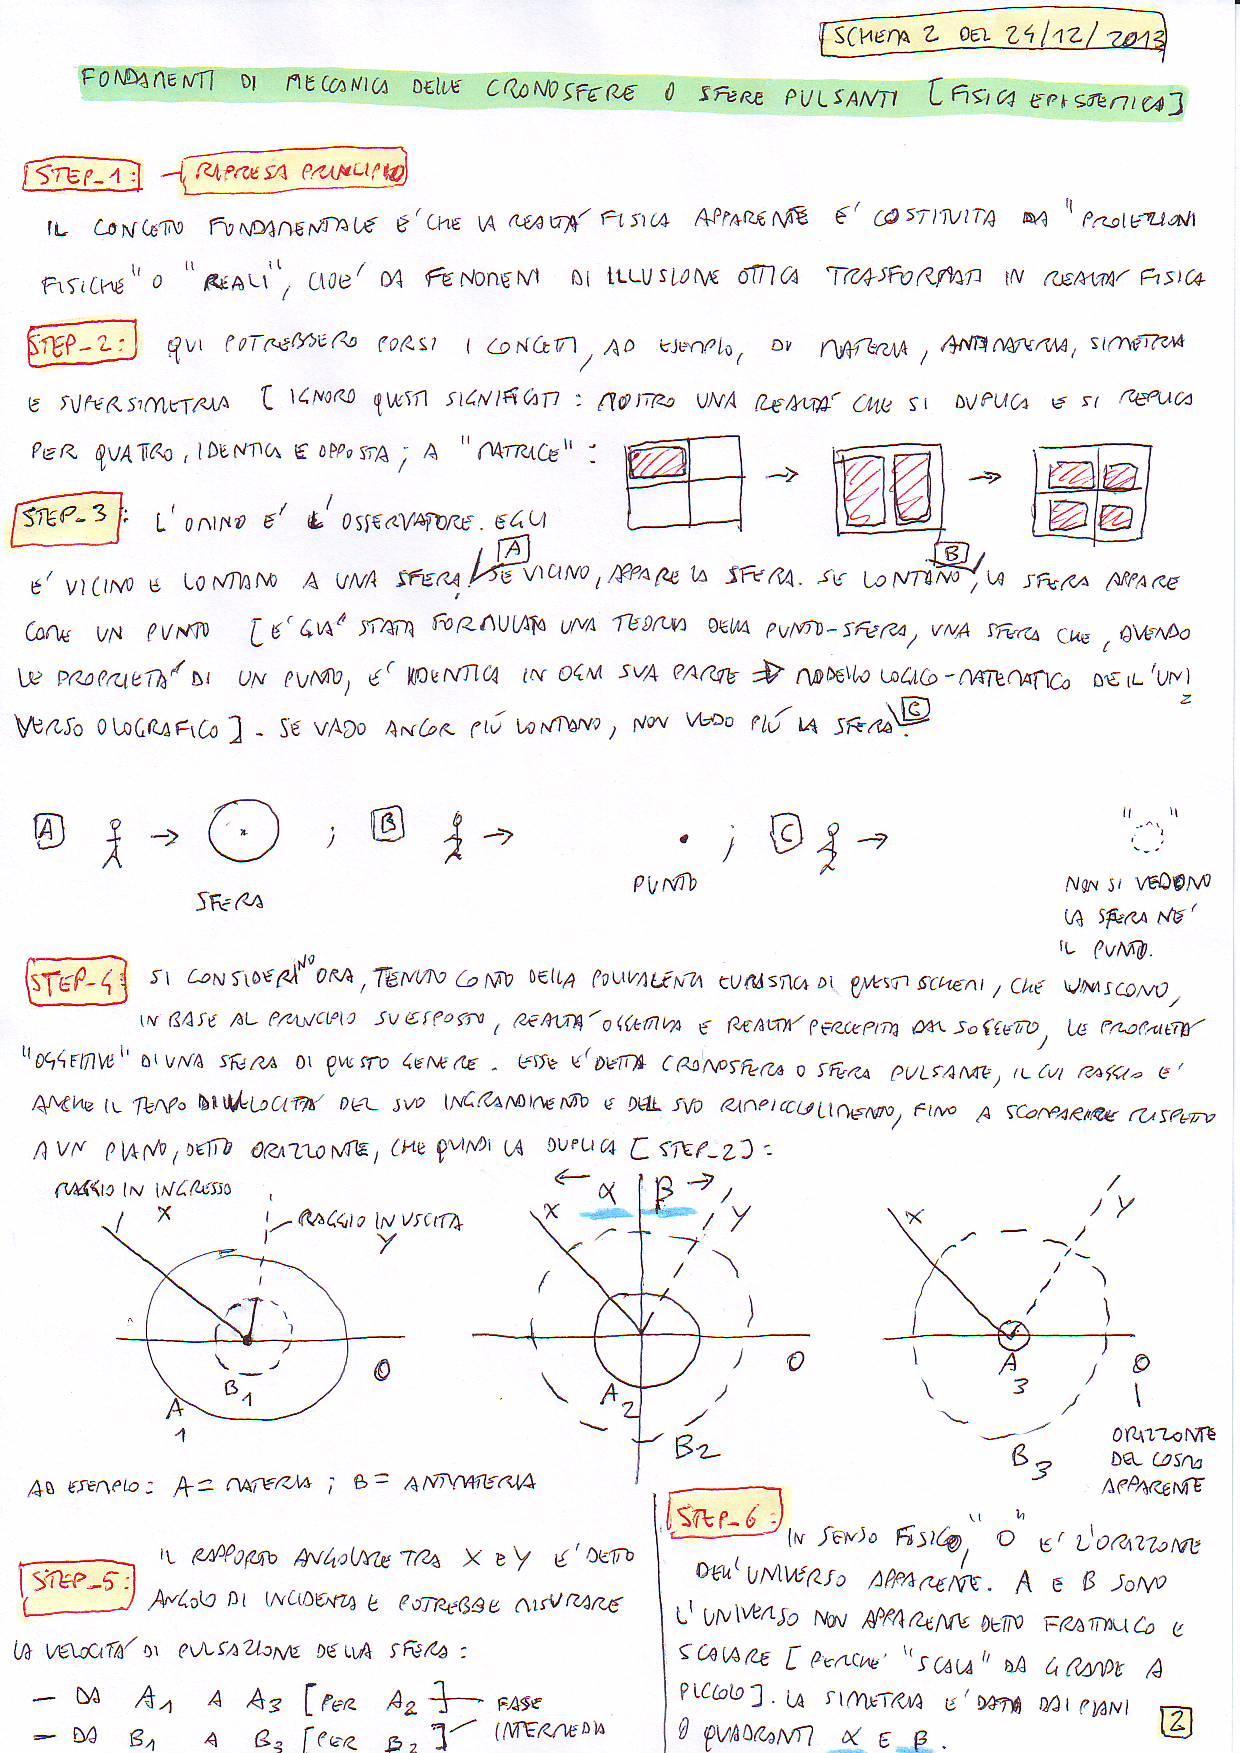 SCHEMA 2 DEL 24/12/2013
FONDAMENTI DI MECCANICA DELLE CRONOSFERE O SFERE PULSANTI [FISICA EPISTEMICA]
STEP_1: → RIPRESA PRINCIPIO
IL CONCETTO FONDAMENTALE E' CHE LA REALTA' FISICA APPARENTE E' COSTITUITA DA "PROIEZIONI
FISICHE" O "REALI", CIOE' DA FENOMENI DI ILLUSIONE OTTICA TRASFORMATI IN REALTA' FISICA
STEP_2: QUI POTREBBERO PORSI I CONCETTI, AD ESEMPIO, DI MATERIA, ANTIMATERIA, SIMETRIA
E SUPERSIMETRIA [IGNORO QUESTI SIGNIFICATI: MOSTRO UNA REALTA' CHE SI DUPLICA E SI REPLICA
PER QUATTRO, IDENTICA E OPPOSTA; A "MATRICE":
STEP_3: L'OMINO E' L'OSSERVATORE. EGLI
A B
E' VICINO E LONTANO A UNA SFERA; SE VICINO, APPARE LA SFERA. SE LONTANO, LA SFERA APPARE
COME UN PUNTO [E' GIA' STATA FORMULATA UNA TEORIA DELLA PUNTO-SFERA, UNA SFERA CHE, AVENDO
LE PROPRIETA' DI UN PUNTO, E' IDENTICA IN OGNI SUA PARTE → MODELLO LOGICO-MATEMATICO DELL'UNI
VERSO OLOGRAFICO]. SE VADO ANCOR PIÚ LONTANO, NON VEDO PIÚ LA SFERA. C
A → ; B → ; C → " "
SFERA
PUNTO
NON SI VEDONO
LA SFERA NE'
IL PUNTO.
STEP_4: SI CONSIDERINO ORA, TENUTO CONTO DELLA POLIVALENZA EURISTICA DI QUESTI SCHEMI, CHE UNISCONO,
IN BASE AL PRINCIPIO SU ESPOSTO, REALTA' OGGETTIVA E REALTA' PERCEPITA DAL SOGGETTO, LE PROPRIETA'
"OGGETTIVE" DI UNA SFERA DI QUESTO GENERE. ESSE E' DETTA CRONOSFERA O SFERA PULSANTE, IL CUI RAGGIO E'
ANCHE IL TEMPO DI VELOCITA' DEL SUO INGRANDIMENTO E DEL SUO RIMPICCIOLIMENTO, FINO A SCOMPARIRE RISPETTO
A UN PIANO, DETTO ORIZZONTE, CHE QUINDI LA DUPLICA [STEP_2]:
RAGGIO IN INGRESSO
X
RAGGIO IN USCITA
Y
O
B1
A1
← α β →
X Y
O
A2
B2
X Y
A3
O
B3
ORIZZONTE
DEL COSMO
APPARENTE
AD ESEMPIO: A = MATERIA; B = ANTIMATERIA
STEP_5: IL RAPPORTO ANGOLARE TRA X E Y E' DETTO
ANGOLO DI INCIDENZA E POTREBBE MISURARE
LA VELOCITA' DI PULSAZIONE DELLA SFERA:
— DA A1 A A3 [PER A2] FASE
— DA B1 A B3 [PER B2] INTERMEDIA
STEP_6: IN SENSO FISICO, "O" E' L'ORIZZONTE
DELL'UNIVERSO APPARENTE. A E B SONO
L'UNIVERSO NON APPARENTE DETTO FRATTALICO E
SCALARE [PERCHE' "SCALA" DA GRANDE A
PICCOLO]. LA SIMETRIA E' DATA DAI PIANI
O QUADRANTI α E β.
2